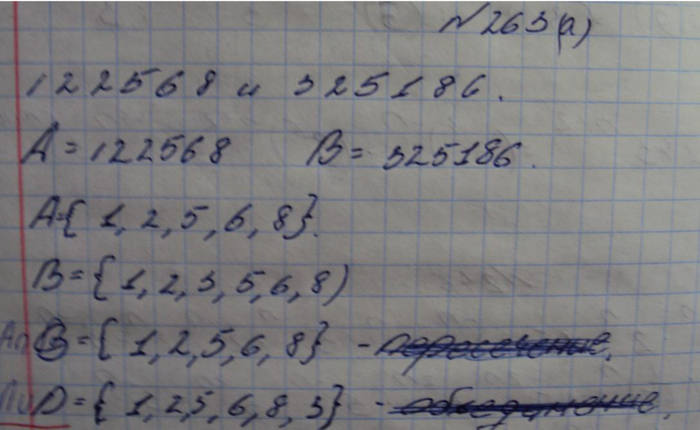 №263(а)
122568 и 325186.
A = 122568 B = 325186.
A={ 1, 2, 5, 6, 8}.
B = { 1, 2, 3, 5, 6, 8)
A∩B = { 1, 2, 5, 6, 8} - пересечение.
D = { 1, 2 5, 6, 8, 3} - объединение.